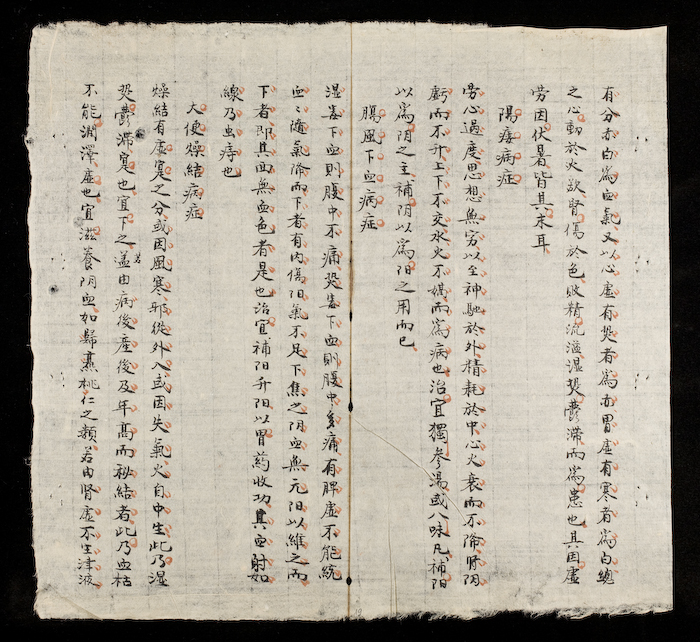 有分赤白為血氣又以心虛有热者為赤胃虛有寒者為白總
之心動於火欲腎傷於色敗精流溢湿热鬱滞而為患也其因虛
劳因伏暑皆其末耳
陽痿病症
劳心過度思想無穷以至神馳於外精耗於中心火衰而不降肾阴
虧而不升上下不交水火不媾而為病也治宜獨参湯或八味凡補阳
以為阴之主補阴以為阳之用而已
腸風下血病症
湿毒下血則腹中不痛热毒下血則腹中多痛有脾虛不能統
血血隨氣降而下者有内傷阳氣不足下焦之阴血無元阳以維之而
下者即其面無血色者是也治宜補阳升阳以胃药收功其血射如
線乃虫痔也
大便燥结病症
燥结有虛寔之分或因風寒邪從外入或因失氣火自中生此乃湿
热鬱滞寔也宜下之若盖由病後產後及年高而秘结者此乃血枯
不能润澤虛也宜滋養阴血如歸蒸桃仁之類若由肾虛不生津液